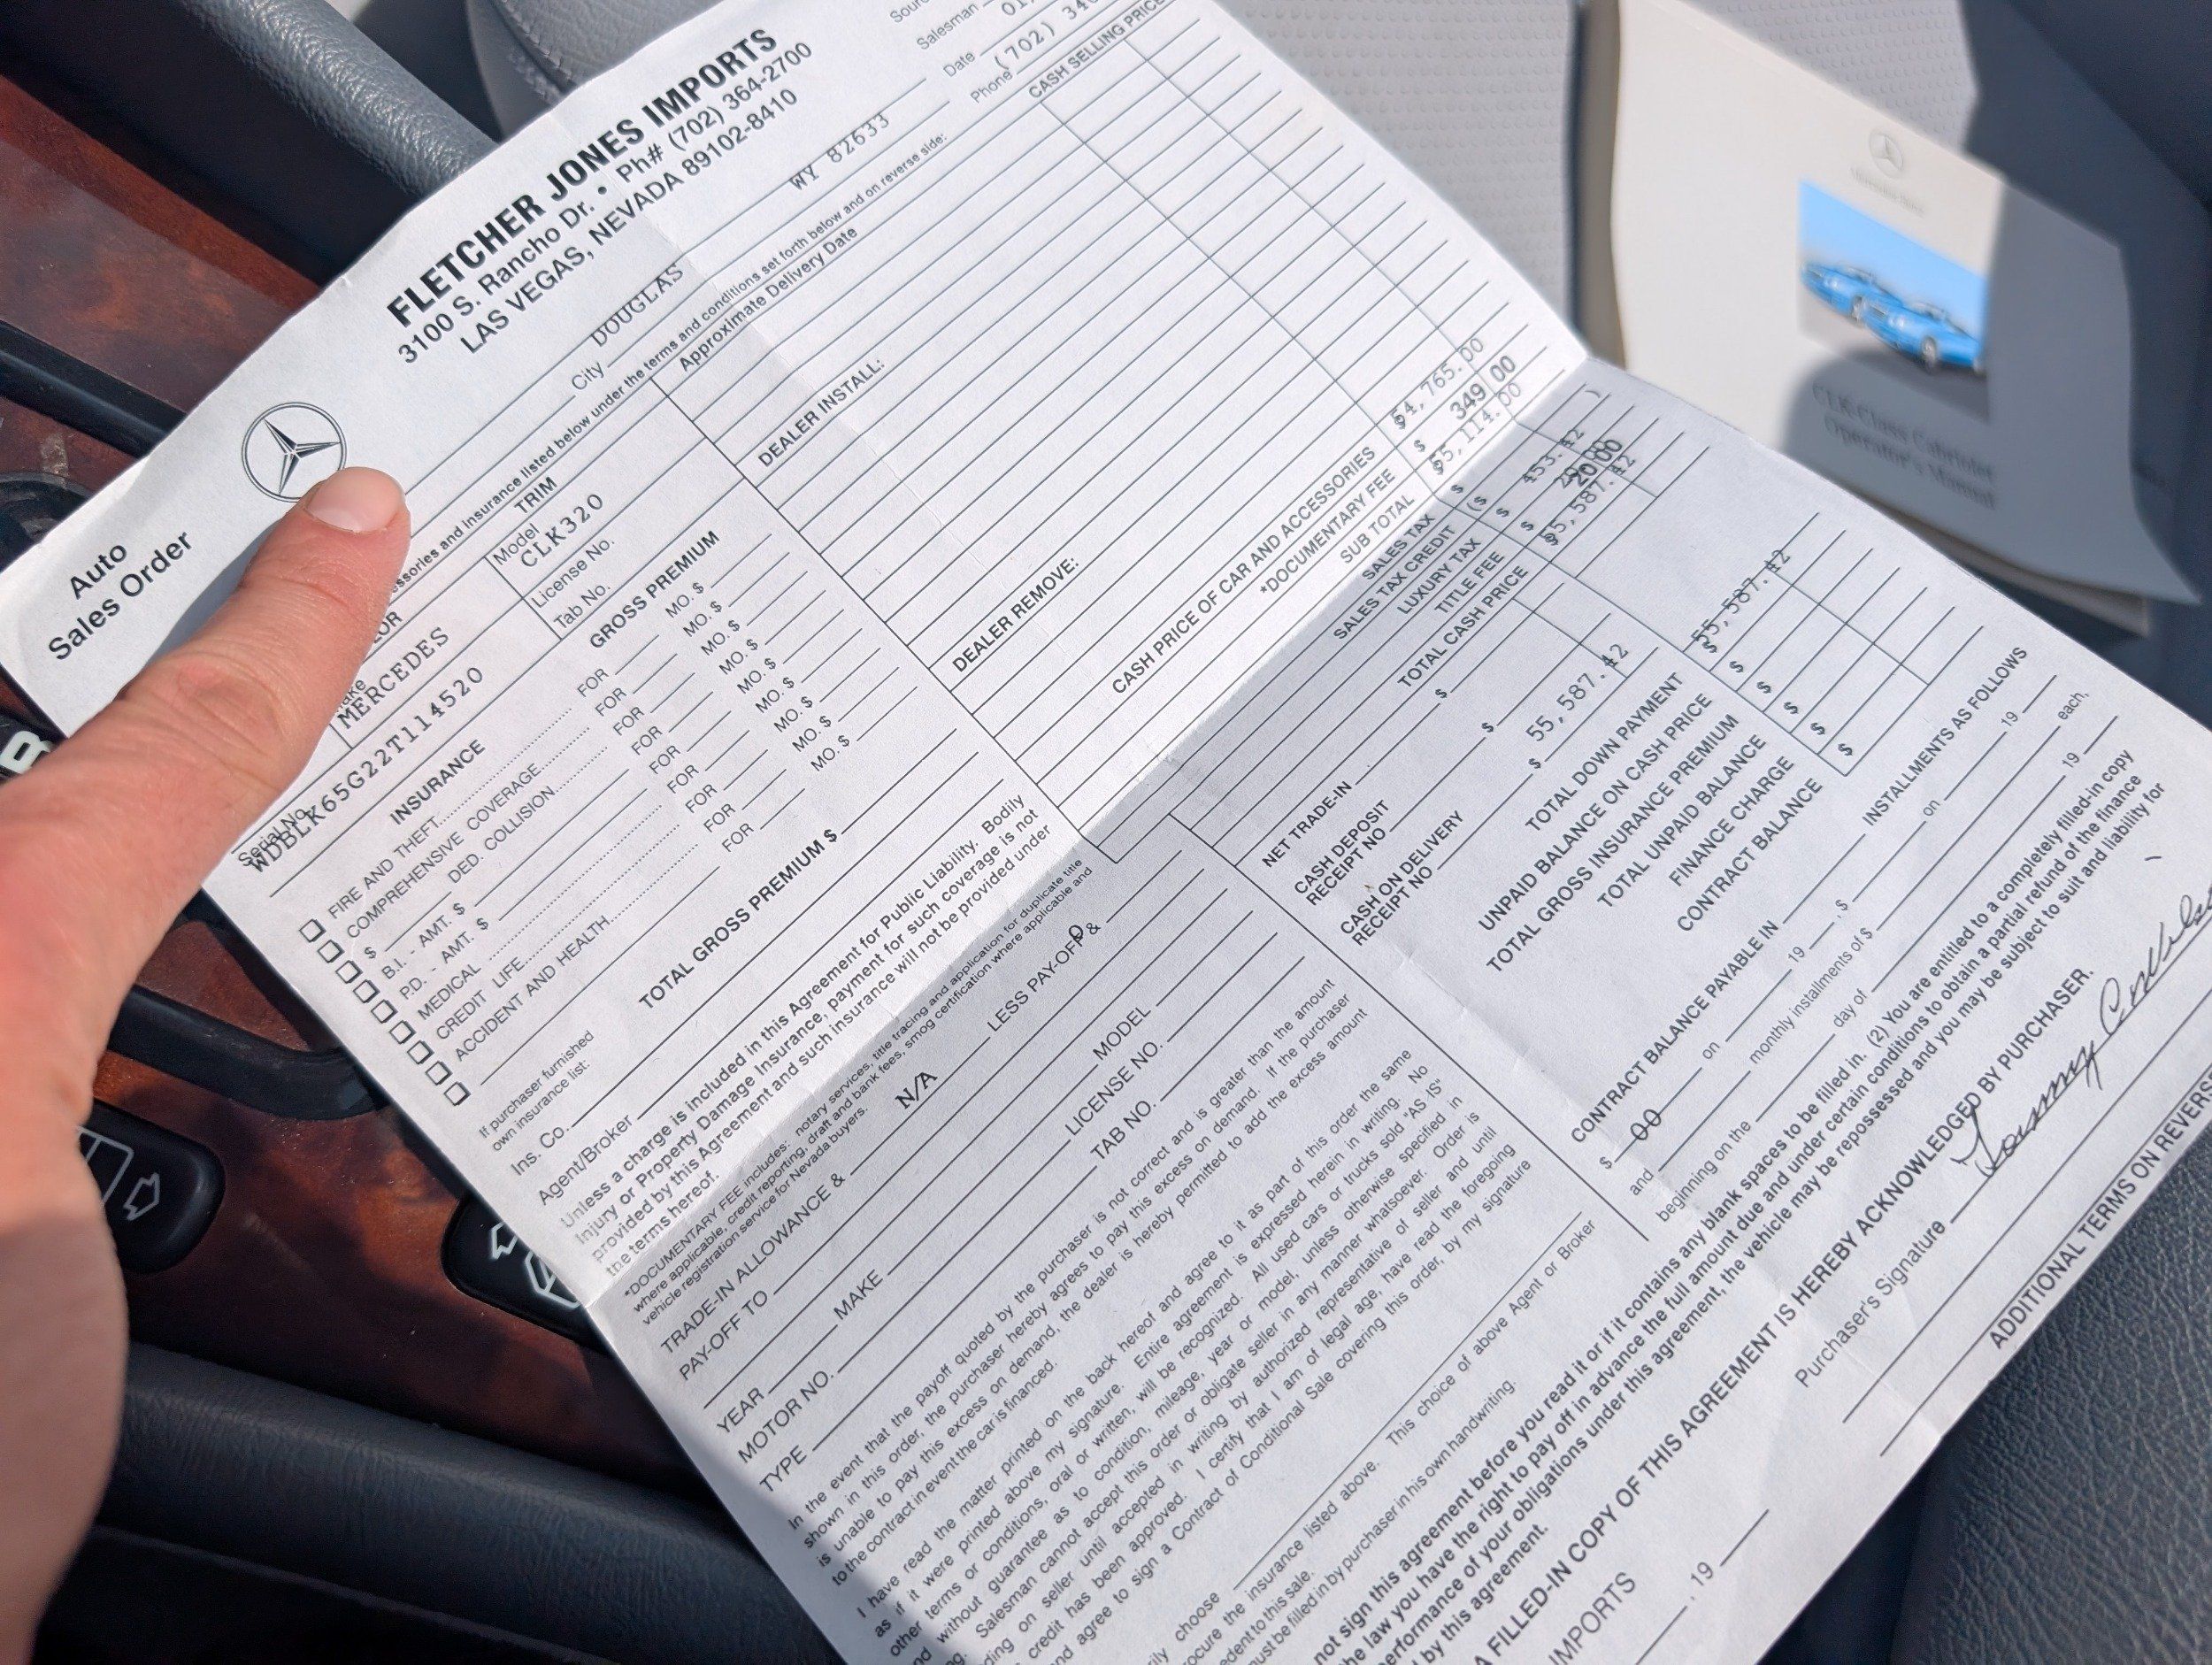 Auto
Sales Order
FLETCHER JONES IMPORTS
3100 S. Rancho Dr. • Ph# (702) 364-2700
LAS VEGAS, NEVADA 89102-8410
Salesman
Date
Phone (702)
City DOUGLAS WY 82633
and insurance listed below under the terms and conditions set forth below and on reverse side:
TRIM
Approximate Delivery Date
CASH SELLING PRICE
MERCEDES
Model
CLK320
Serial No.
WDBLK65G22T114520
License No.
Tab No.
DEALER INSTALL:
DEALER REMOVE:
INSURANCE
GROSS PREMIUM
FIRE AND THEFT FOR MO. $
COMPREHENSIVE COVERAGE FOR MO. $
$ DED. COLLISION FOR MO. $
B.I. - AMT. $ FOR MO. $
P.D. - AMT. $ FOR MO. $
MEDICAL FOR MO. $
CREDIT LIFE FOR MO. $
ACCIDENT AND HEALTH FOR MO. $
TOTAL GROSS PREMIUM $
If purchaser furnished
own insurance list:
Ins. Co.
Agent/Broker
Unless a charge is included in this Agreement for Public Liability. Bodily
Injury or Property Damage Insurance, payment for such coverage is not
provided by this Agreement and such insurance will not be provided under
the terms hereof.
*DOCUMENTARY FEE includes: notary services, title tracing and application for duplicate title
where applicable, credit reporting, draft and bank fees, smog certification where applicable and
vehicle registration service for Nevada buyers.
CASH PRICE OF CAR AND ACCESSORIES $54,765.00
*DOCUMENTARY FEE $ 349 00
SUB TOTAL $55,114.00
SALES TAX $ 453.42
SALES TAX CREDIT ($ )
LUXURY TAX $
TITLE FEE $ 20 00
TOTAL CASH PRICE $55,587.42
NET TRADE-IN $
CASH DEPOSIT
RECEIPT NO $
CASH ON DELIVERY
RECEIPT NO $ 55,587.42
TOTAL DOWN PAYMENT $55,587.42
UNPAID BALANCE ON CASH PRICE $
TOTAL GROSS INSURANCE PREMIUM $
TOTAL UNPAID BALANCE $
FINANCE CHARGE $
CONTRACT BALANCE $
CONTRACT BALANCE PAYABLE IN INSTALLMENTS AS FOLLOWS
$ 00 on 19 , $ on 19
and monthly installments of $ each,
beginning on the day of 19
TRADE-IN ALLOWANCE & N/A LESS PAY-OFF & 0
PAY-OFF TO
YEAR MAKE MODEL
MOTOR NO. LICENSE NO.
TYPE TAB NO.
In the event that the payoff quoted by the purchaser is not correct and is greater than the amount
shown in this order, the purchaser hereby agrees to pay this excess on demand. If the purchaser
is unable to pay this excess on demand, the dealer is hereby permitted to add the excess amount
to the contract in event the car is financed.
I have read the matter printed on the back hereof and agree to it as part of this order the same
as if it were printed above my signature. Entire agreement is expressed herein in writing. No
other terms or conditions, oral or written, will be recognized. All used cars or trucks sold "AS IS"
without guarantee as to condition, mileage, year or model, unless otherwise specified in
Salesman cannot accept this order or obligate seller in any manner whatsoever. Order is
on seller until accepted in writing by authorized representative of seller and until
credit has been approved. I certify that I am of legal age, have read the foregoing
and agree to sign a Contract of Conditional Sale covering this order, by my signature
choose This choice of above Agent or Broker
the insurance listed above.
to this sale.
must be filled in by purchaser in his own handwriting.
not sign this agreement before you read it or if it contains any blank spaces to be filled in. (2) You are entitled to a completely filled-in copy
the law you have the right to pay off in advance the full amount due and under certain conditions to obtain a partial refund of the finance
performance of your obligations under this agreement, the vehicle may be repossessed and you may be subject to suit and liability for
by this agreement.
A FILLED-IN COPY OF THIS AGREEMENT IS HEREBY ACKNOWLEDGED BY PURCHASER.
IMPORTS
, 19
Purchaser's Signature
ADDITIONAL TERMS ON REVERSE
Mercedes-Benz
CLK-Class Cabriolet
Operator's Manual